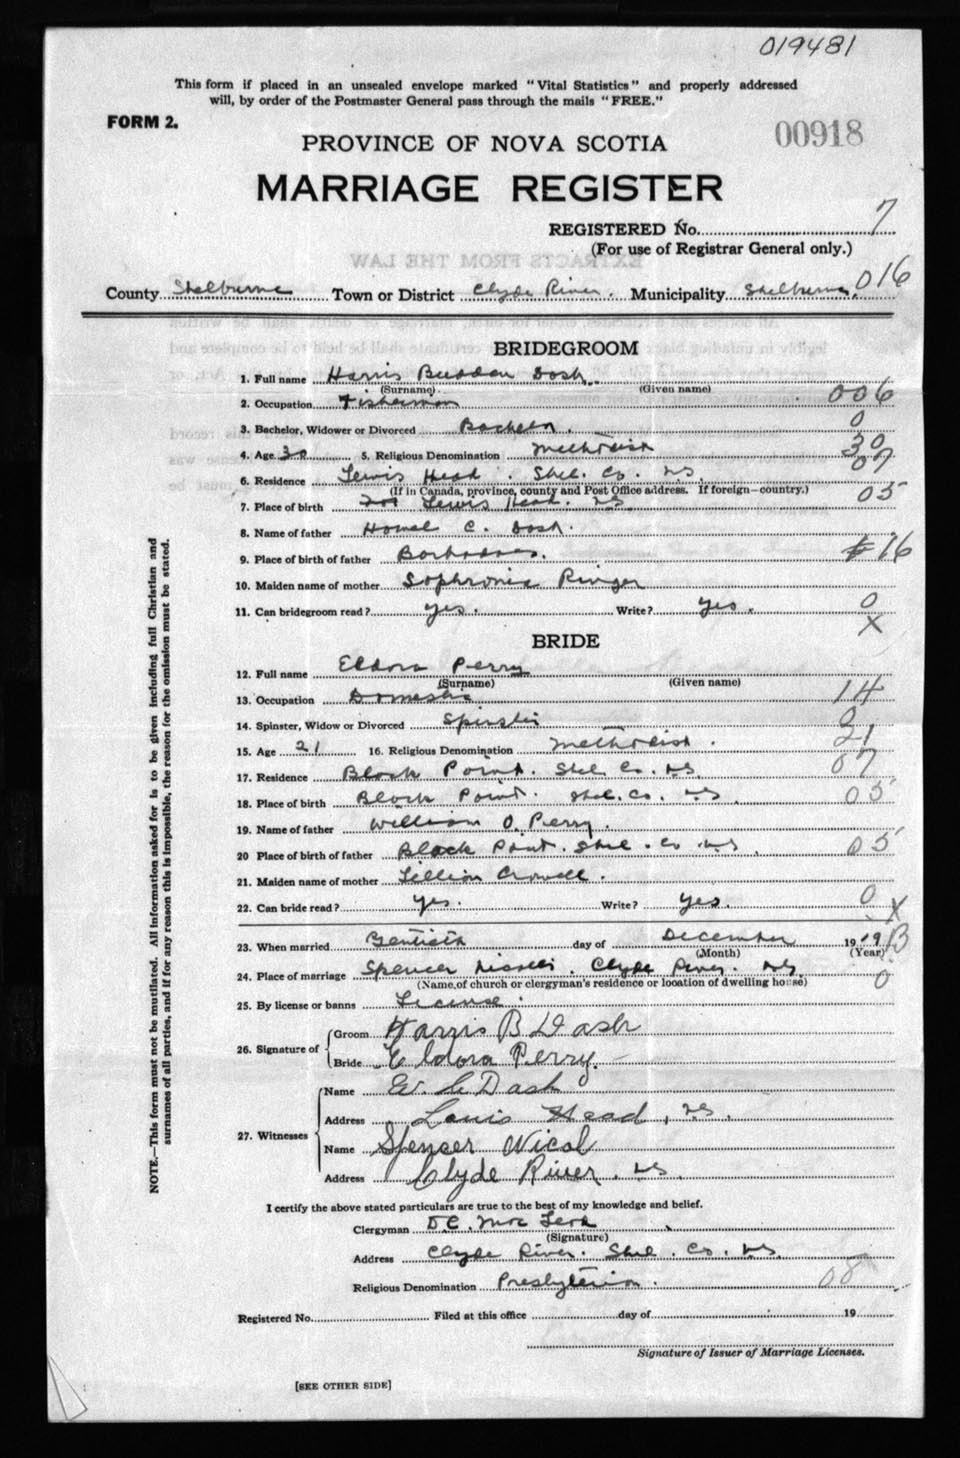 019481
This form if placed in an unsealed envelope marked "Vital Statistics" and properly addressed
will, by order of the Postmaster General pass through the mails "FREE."
FORM 2.
00918
PROVINCE OF NOVA SCOTIA
MARRIAGE REGISTER
REGISTERED No. 7
(For use of Registrar General only.)
EXTRACTS FROM THE LAW
016
County Shelburne Town or District Clyde River. Municipality Shelburne.
BRIDEGROOM
1. Full name Harris Dash.
(Surname) (Given name)
2. Occupation Fisherman 006
3. Bachelor, Widower or Divorced Bachelor. 0
4. Age 30 5. Religious Denomination Methodist 30
6. Residence Lewis Head. Shel. Co. NS 07
(If in Canada, province, county and Post Office address. If foreign—country.)
7. Place of birth Lewis Head. NS 05
8. Name of father C. Dash.
9. Place of birth of father Barbadoes. 16
10. Maiden name of mother Sophronia Ringer
11. Can bridegroom read? yes. Write? yes. 0
X
BRIDE
12. Full name Eldora Perry
(Surname) (Given name)
13. Occupation Domestic 14
14. Spinster, Widow or Divorced Spinster
15. Age 21 16. Religious Denomination Methodist. 21
17. Residence Black Point. Shel. Co. NS 07
18. Place of birth Black Point. Shel. Co. NS. 05
19. Name of father William O. Perry.
20 Place of birth of father Black Point. Shel. Co NS. 05
21. Maiden name of mother Lillian Crowell.
22. Can bride read? yes. Write? yes. 0
X
23. When married day of December 19 19
(Month) (Year)
24. Place of marriage Spencer Clyde River. NS. 0
(Name, of church or clergyman's residence or location of dwelling house)
25. By license or banns License.
26. Signature of
Groom Harris B Dash
Bride Eldora Perry.
27. Witnesses
Name Dash
Address Louis Head, NS.
Name Spencer Nicol
Address Clyde River. NS
I certify the above stated particulars are true to the best of my knowledge and belief.
Clergyman
(Signature)
Address Clyde River. Shel. Co. NS
Religious Denomination Presbyterian. 08
Registered No. Filed at this office day of 19
Signature of Issuer of Marriage Licenses.
[SEE OTHER SIDE]
NOTE.—This form must not be mutilated. All information asked for is to be given including full Christian and
surnames of all parties, and if for any reason this is impossible, the reason for the omission must be stated.